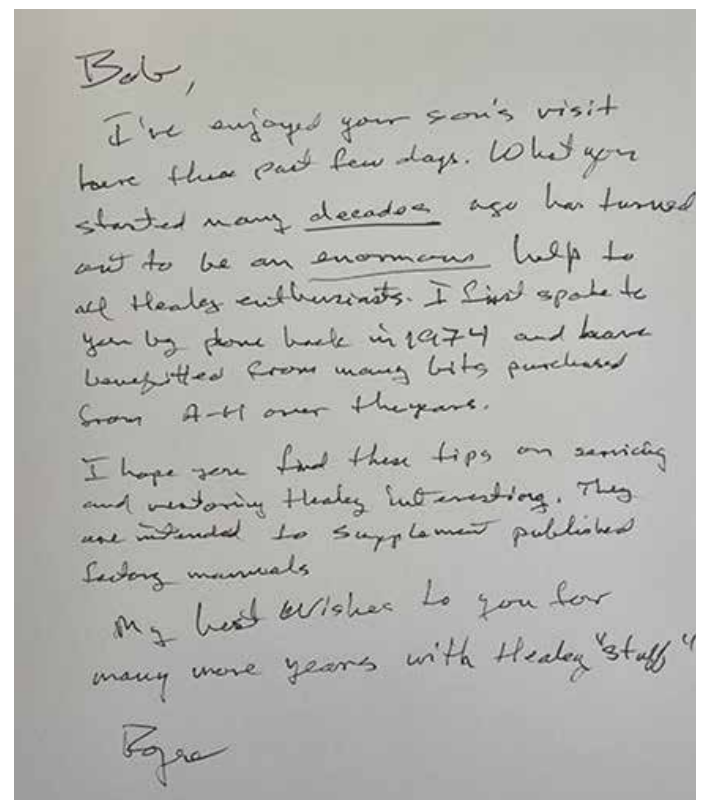 Bob,
I've enjoyed your son's visit
here these past few days. What you
started many decades ago has turned
out to be an enormous help to
all Healey enthusiasts. I first spoke to
you by phone back in 1974 and have
benefitted from many bits purchased
from A-H over the years.
I hope you find these tips on servicing
and restoring Healey interesting. They
are intended to supplement published
factory manuals
My best wishes to you for
many more years with Healey "stuff"